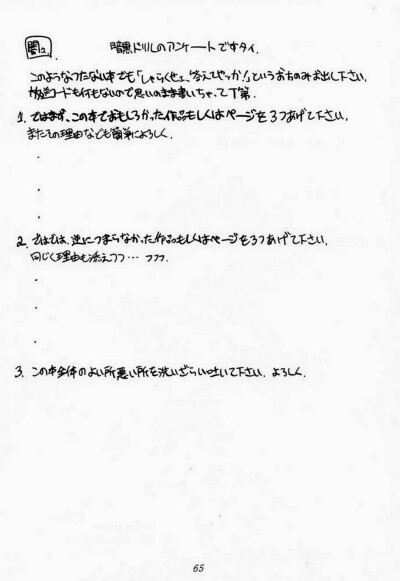 問2. 暗黒ドリルのアンケートですタイ.
このようなつたない本でも「しゃらくせェ、答えてやっか!」というおちのみお出し下さい.
放送コードも何もないので思いのまま書いちゃって下第.
1. ではまず、この本でおもしろかった作品もしくはページを3つあげて下さい.
またその理由なども簡単によろしく.
・
・
・
2. ではでは、逆につまらなかった作品もしくはページを3つあげて下さい.
同じく理由も添えつつ… フフフ.
・
・
・
3. この本全体のよい所悪い所を洗いざらい吐いて下さい. よろしく.
65